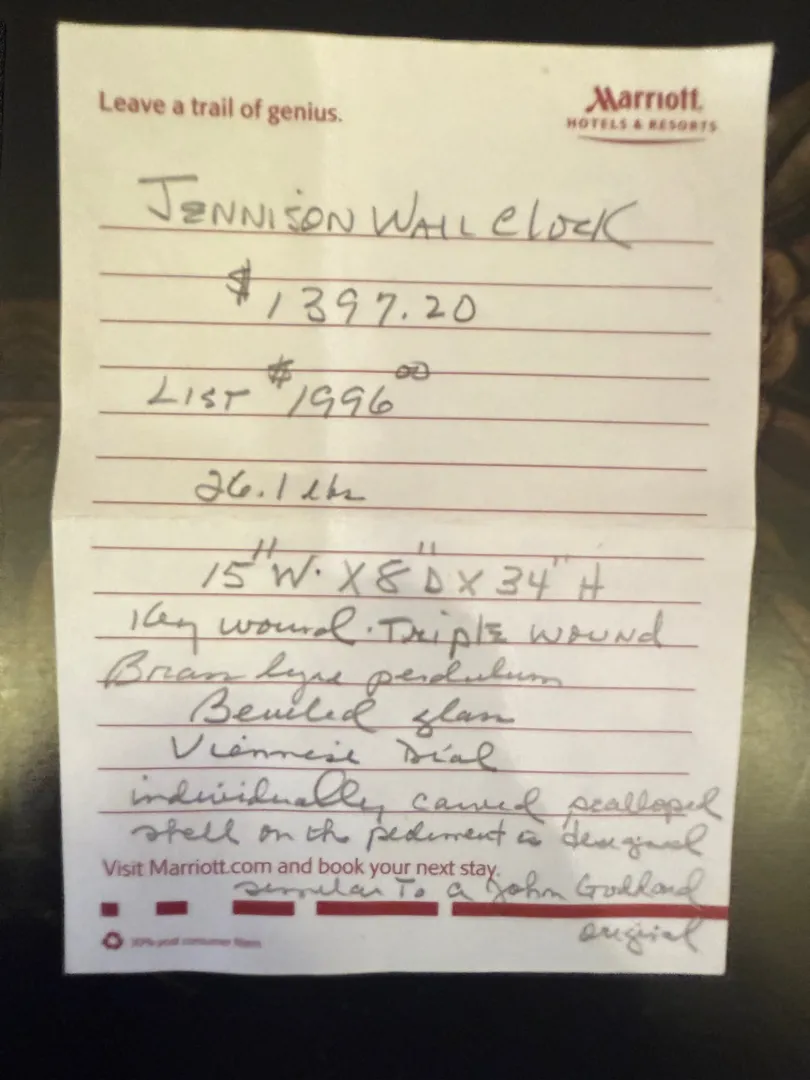 Leave a trail of genius.
Marriott
HOTELS & RESORTS
JENNISON WALL Clock
$1397.20
LIST $1996.00
26.1 lbs
15" W. X 8" D X 34" H
Key wound. Triple WOUND
Brass lyre pendulum
Beveled glass
Viennese Dial
individually carved scalloped
shell on the pediment is designed
Visit Marriott.com and book your next stay.
similar To a John Goddard
original
30% post consumer fibers